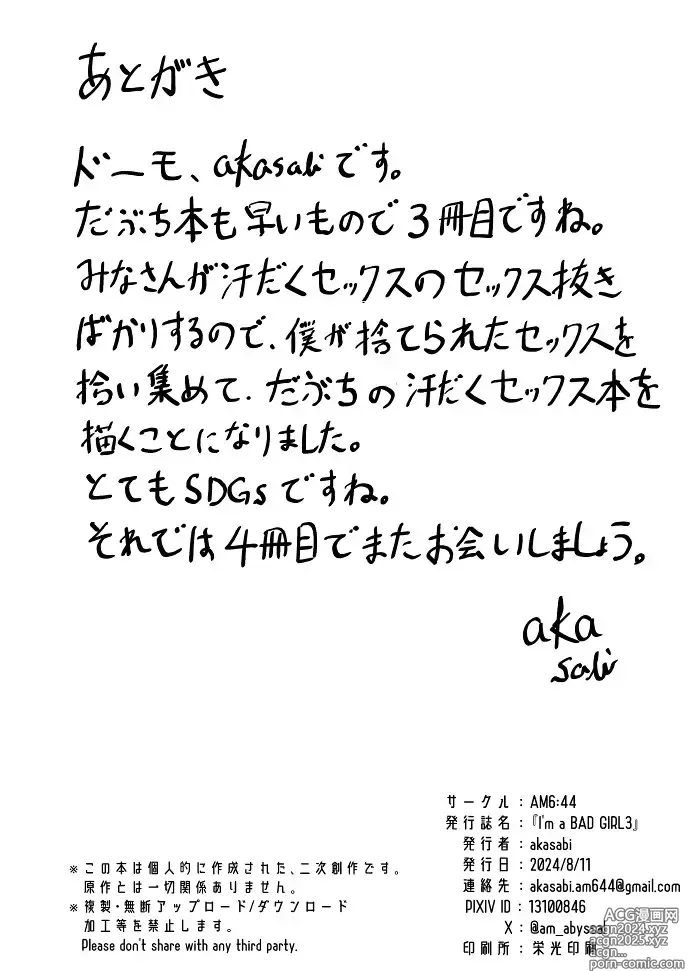 あとがき
ドーモ、akasabiです。
だぶち本も早いもので3冊目ですね。
みなさんが汗だくセックスのセックス抜き
ばかりするので、僕が捨てられたセックスを
拾い集めて、だぶちの汗だくセックス本を
描くことになりました。
とてもSDGsですね。
それでは4冊目でまたお会いしましょう。
aka
sabi
サークル：AM6:44
発行誌名：『I'm a BAD GIRL3』
発行者：akasabi
発行日：2024/8/11
連絡先：akasabi.am644@gmail.com
PIXIV ID：13100846
X：@am_abyssal
印刷所：栄光印刷
※この本は個人的に作成された、二次創作です。
原作とは一切関係ありません。
※複製・無断アップロード/ダウンロード
加工等を禁止します。
Please don't share with any third party.
ACG漫画网
acgn2024.com
acgn2025.com
porn-comic.com